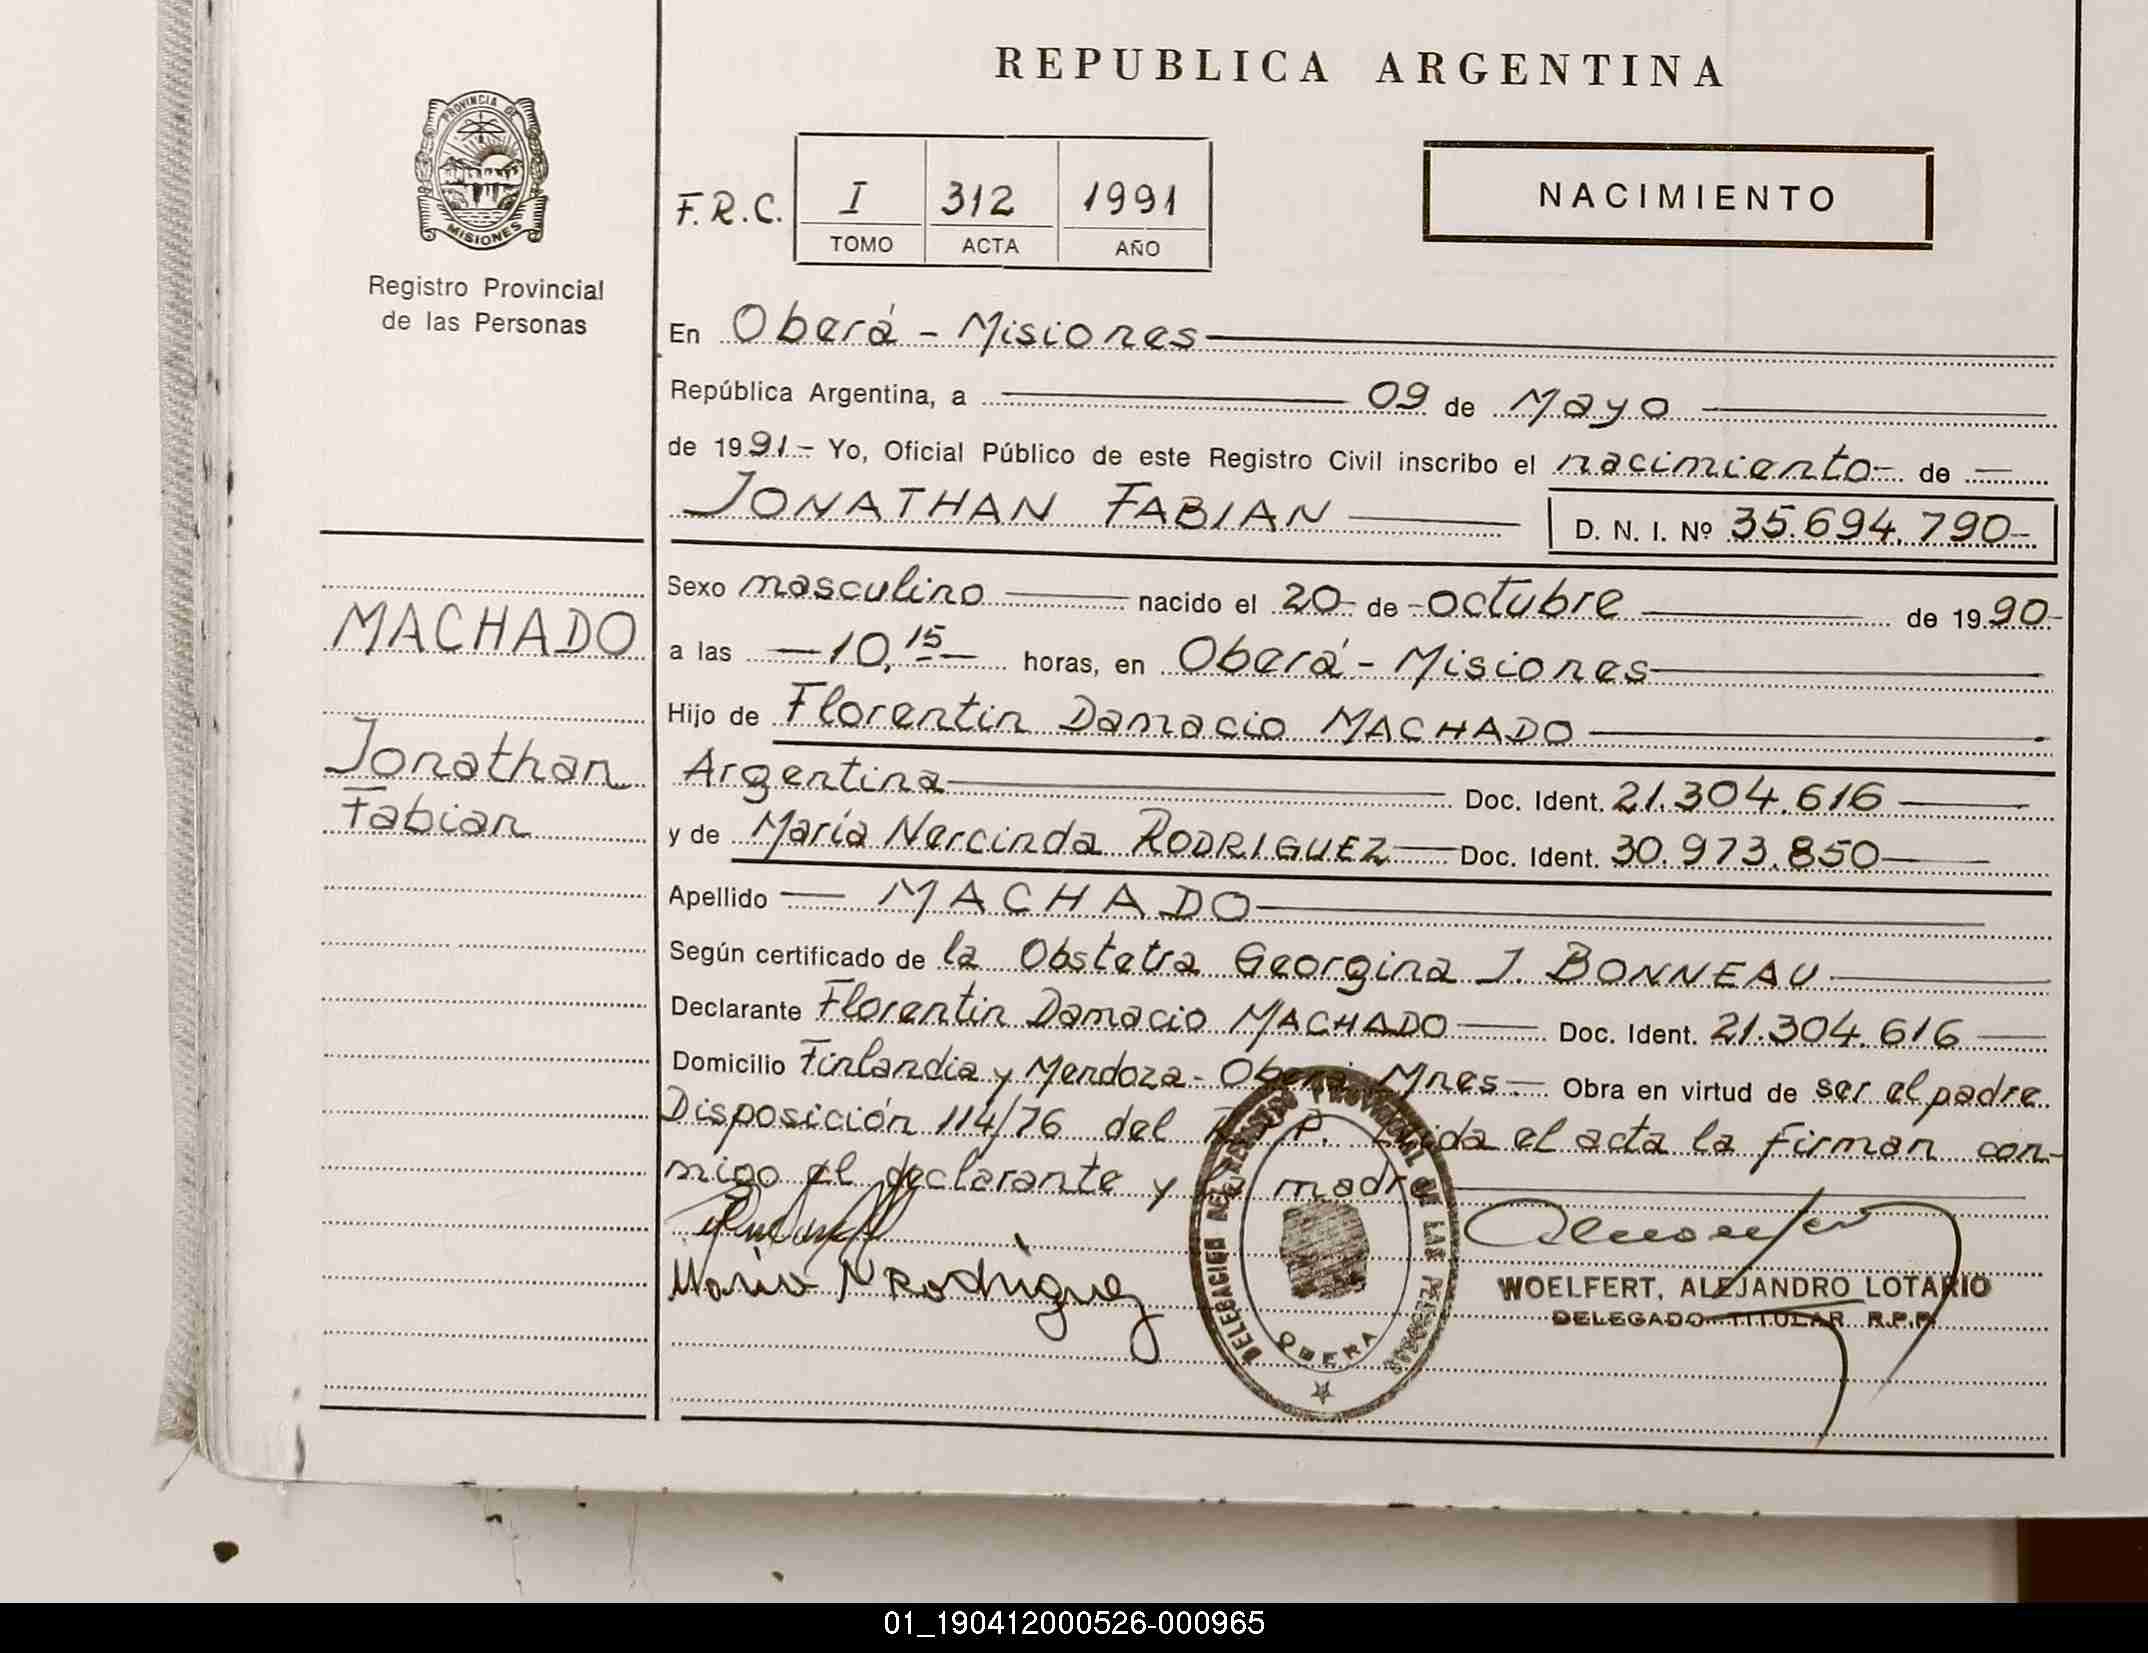 REPUBLICA ARGENTINA
PROVINCIA DE
MISIONES
Registro Provincial
de las Personas
F.R.C.
I 312 1991
TOMO ACTA AÑO
NACIMIENTO
En Oberá - Misiones
República Argentina, a 09 de Mayo
de 1991- Yo, Oficial Público de este Registro Civil inscribo el nacimiento- de
JONATHAN FABIAN D. N. I. Nº 35.694.790-
Sexo masculino nacido el 20- de -octubre de 1990-
a las -10,15- horas, en Oberá - Misiones
Hijo de Florentin Damacio MACHADO
Argentina Doc. Ident. 21.304.616
y de María Nercinda RODRIGUEZ Doc. Ident. 30.973.850
Apellido MACHADO
Según certificado de la Obstetra Georgina J. BONNEAU
Declarante Florentin Damacio MACHADO Doc. Ident. 21.304.616
Domicilio Finlandia y Mendoza - Oberá Mnes.- Obra en virtud de ser el padre
Disposición 114/76 del R.P.P. Leida el acta la firman con-
migo el declarante y la madre
MACHADO
Jonathan
Fabian
Maria N Rodriguez
DELEGACION DEL REGISTRO PROVINCIAL DE LAS PERSONAS
OBERA
WOELFERT, ALEJANDRO LOTARIO
DELEGADO TITULAR R.P.P.
01_190412000526-000965